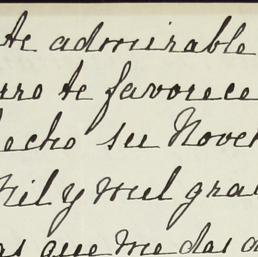 te admirable
rro te favorece
hecho su Noven
Mil y mil gra
as que me das a